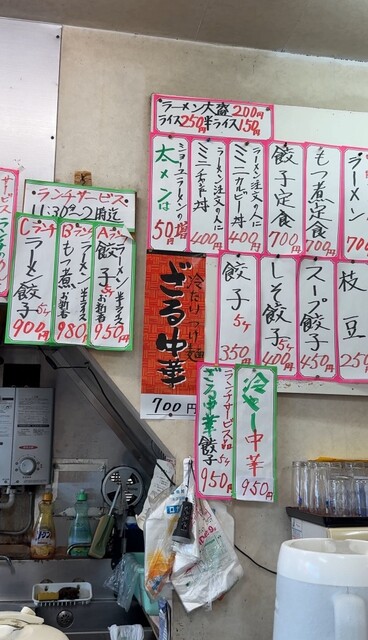 ラーメン大盛 200円
ライス250円 半ライス150円
ラーメン
700
もつ煮定食
700円
餃子定食
700円
ラーメン注文の人に
ミニカルビー丼
400円
ラーメン注文の人に
ミニチャーシュー丼
400円
太メンは
ショーユラーメンの
50円増
枝豆
250
スープ餃子
450円
しそ餃子
5ケ
400円
餃子
5ケ
350円
冷たいつけ麺
ざる中華
700円
冷やし中華
950円
ランチサービス品
ざる中華
餃子5ケ
950円
ランチサービス
11:30~2時迄
Aランチ
ラーメン 半ライス
餃子3ケ お新香
950円
Bランチ
ラーメン 半ライス
もつ煮 お新香
980円
Cランチ
ラーメン
餃子5ケ
900円
サービス